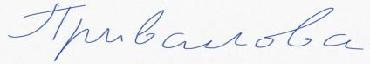 Привалова